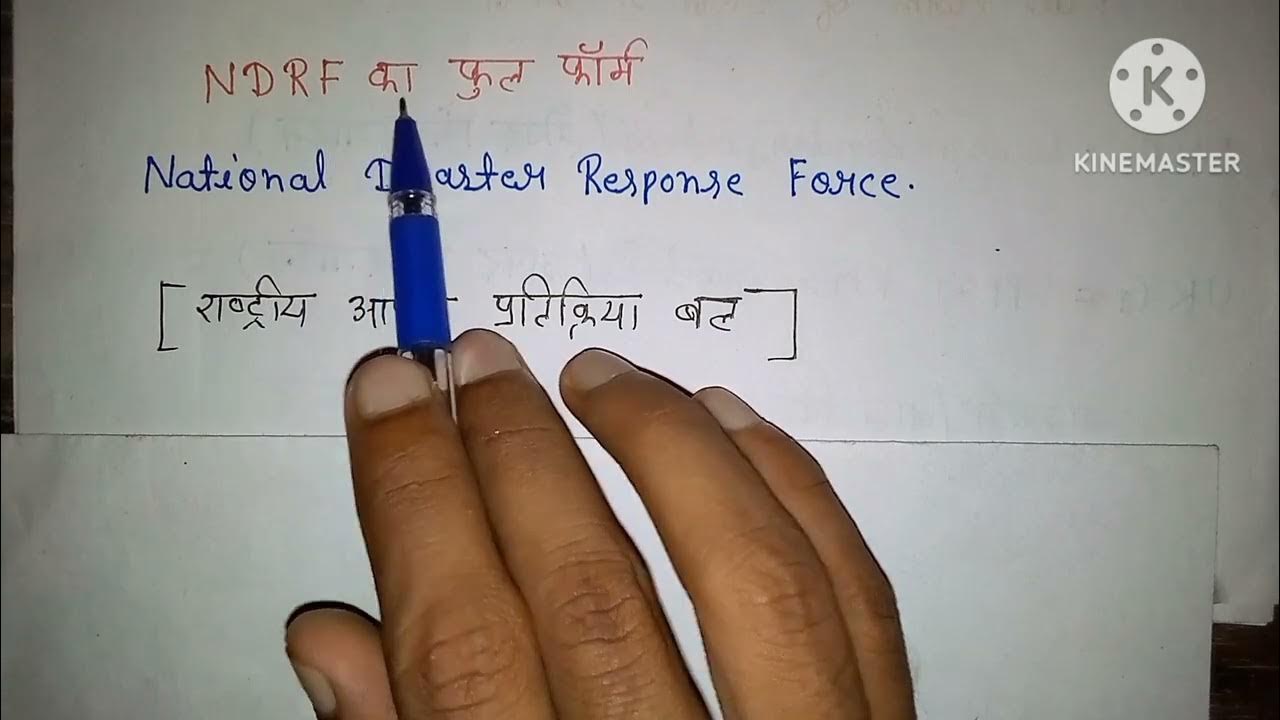 NDRF का फुल फॉर्म
National Response Force.
[राष्ट्रीय प्रतिक्रिया बल]
K
KINEMASTER